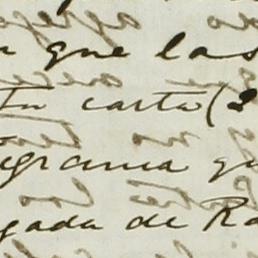 que las
tu carta (2
grama qu
gada de Ra